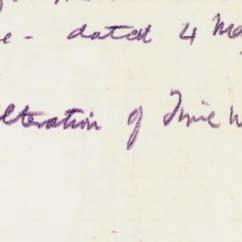 e - dated 4 Ma
lteration of Time W